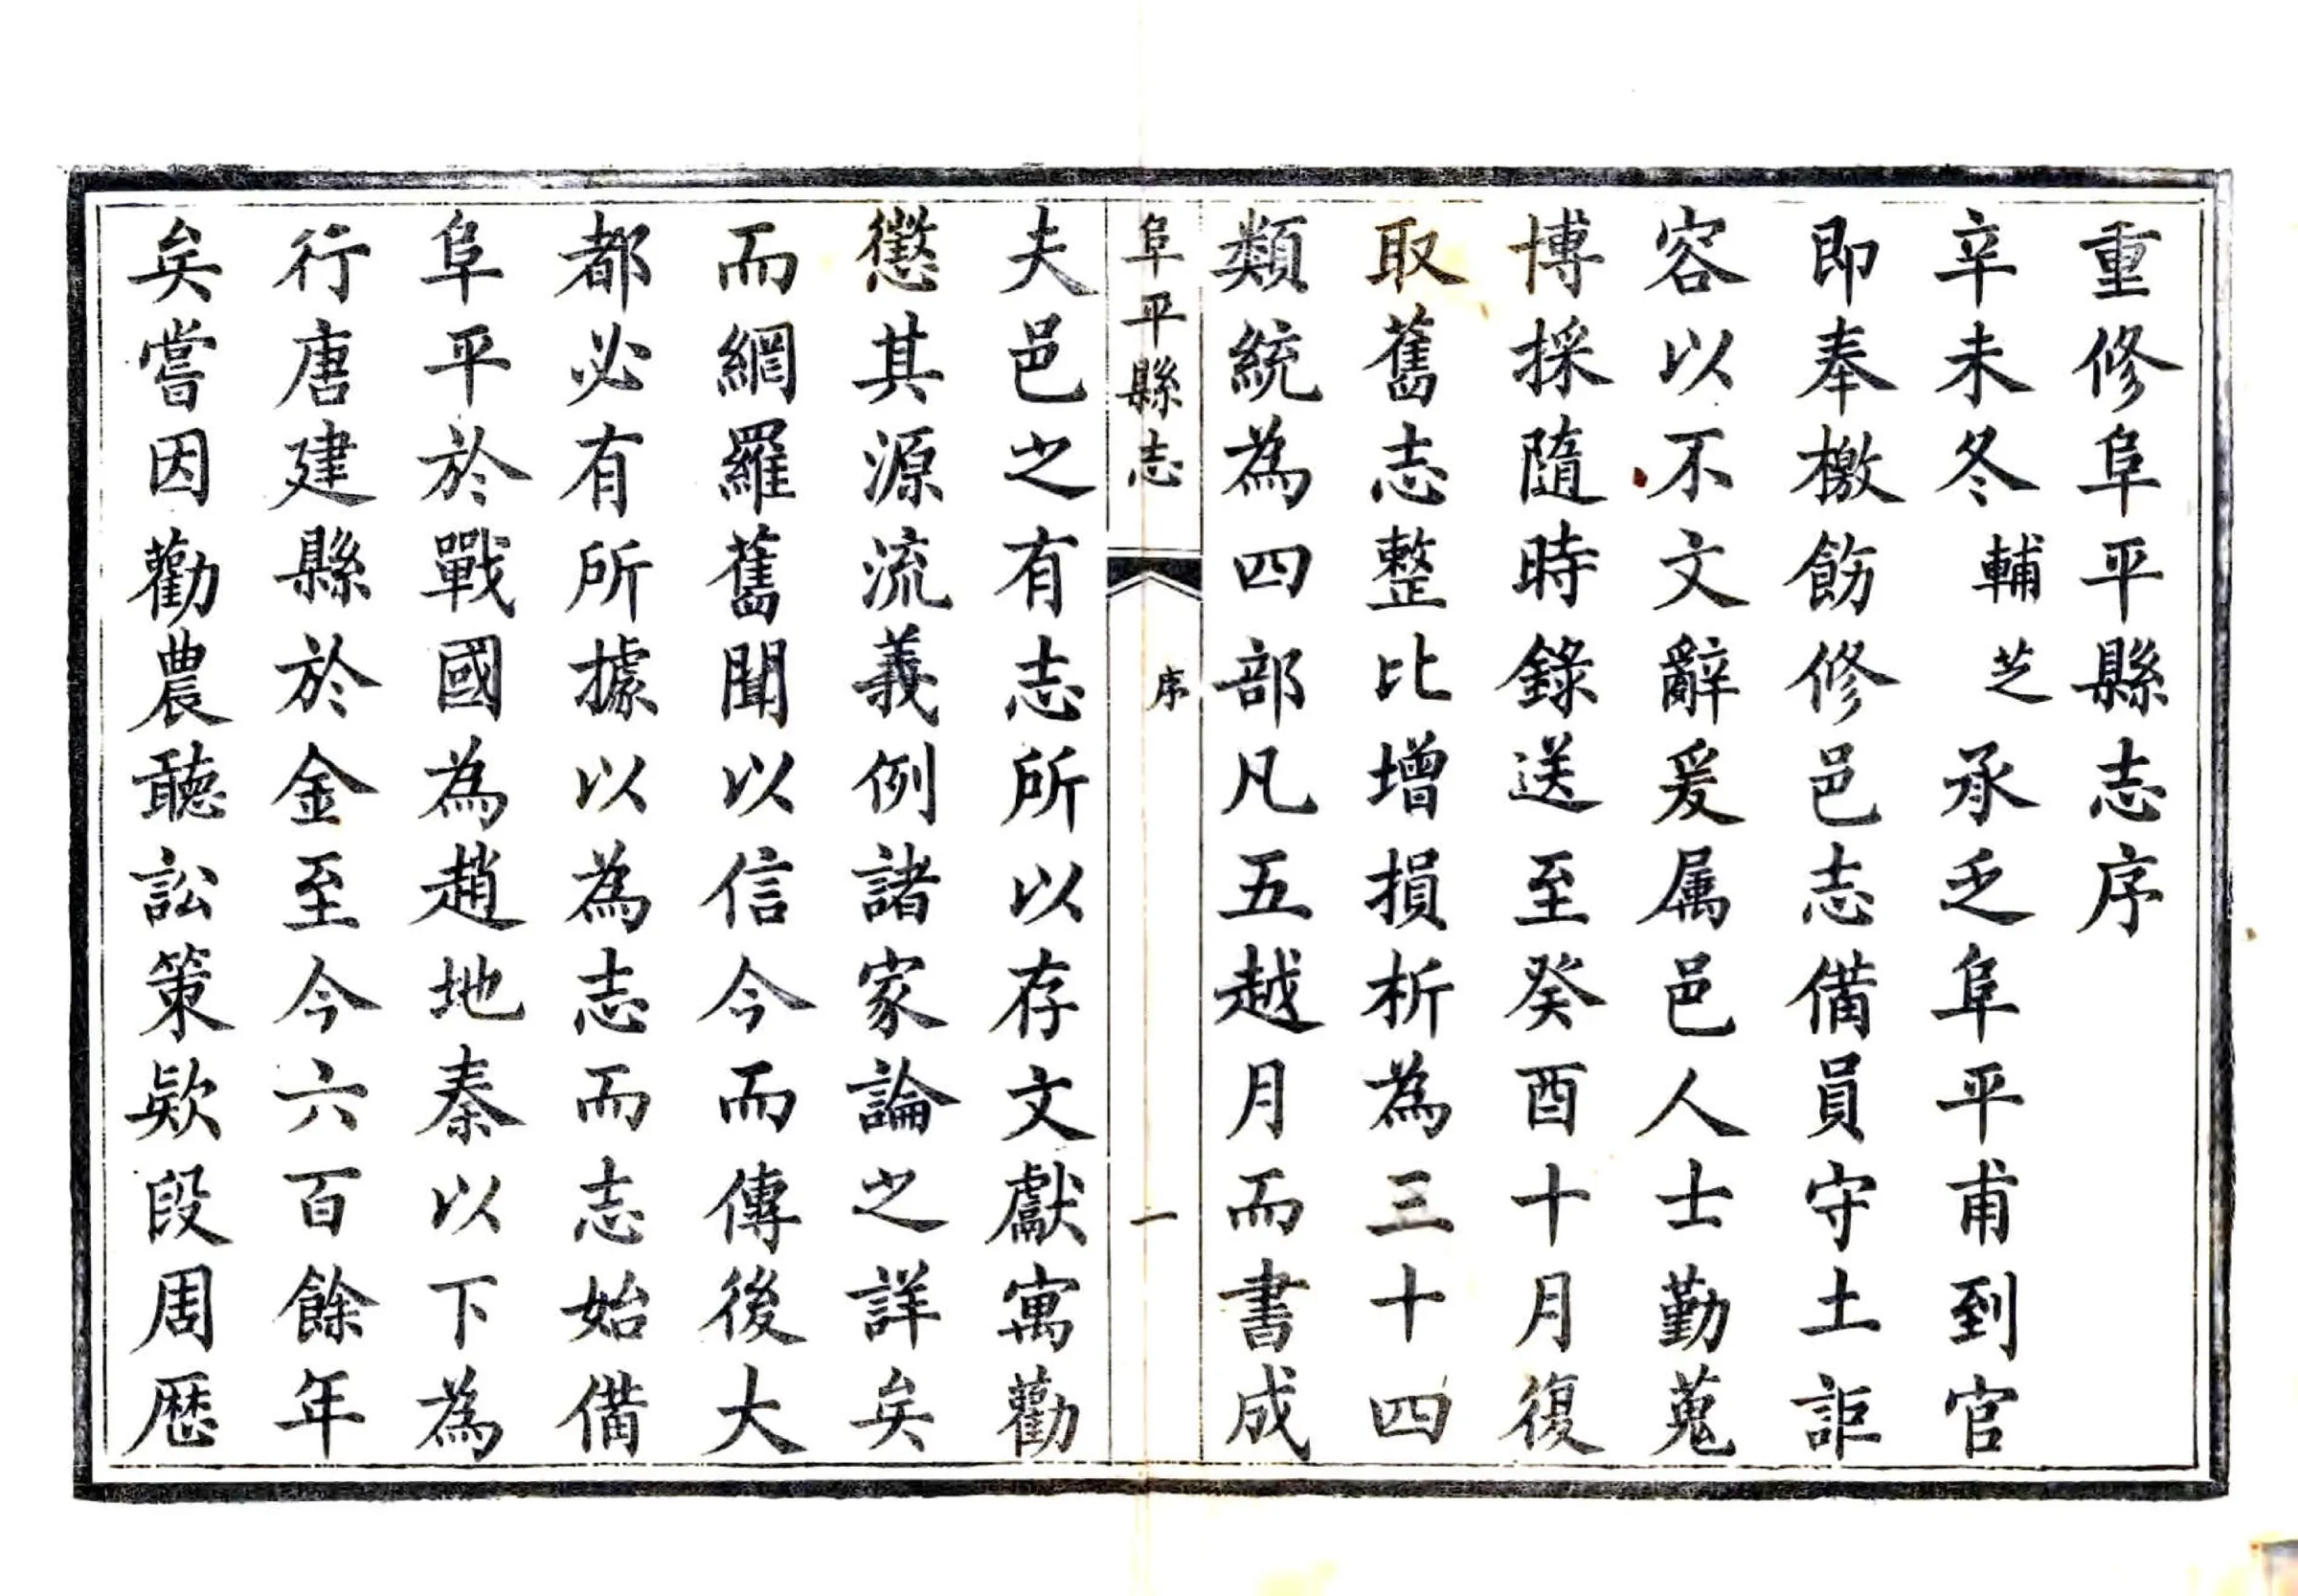 重修阜平縣志序
辛未冬輔芝承乏阜平甫到官
即奉檄飭修邑志備員守土詎
容以不文辭爰属邑人士勤蒐
博採隨時錄送至癸酉十月復
取舊志整比增損析為三十四
類統為四部凡五越月而書成
阜平縣志
序
一
夫邑之有志所以存文獻寓勸
懲其源流義例諸家論之詳矣
而網羅舊聞以信今而傳後大
都必有所據以為志而志始備
阜平於戰國為趙地秦以下為
行唐建縣於金至今六百餘年
矣嘗因勸農聽訟策欵段周歷